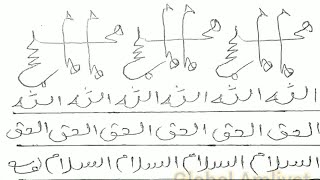 الله الله الله الله الله الله
الحق الحق الحق الحق الحق الحق
السلام السلام السلام السلام السلام
Global Amliyat